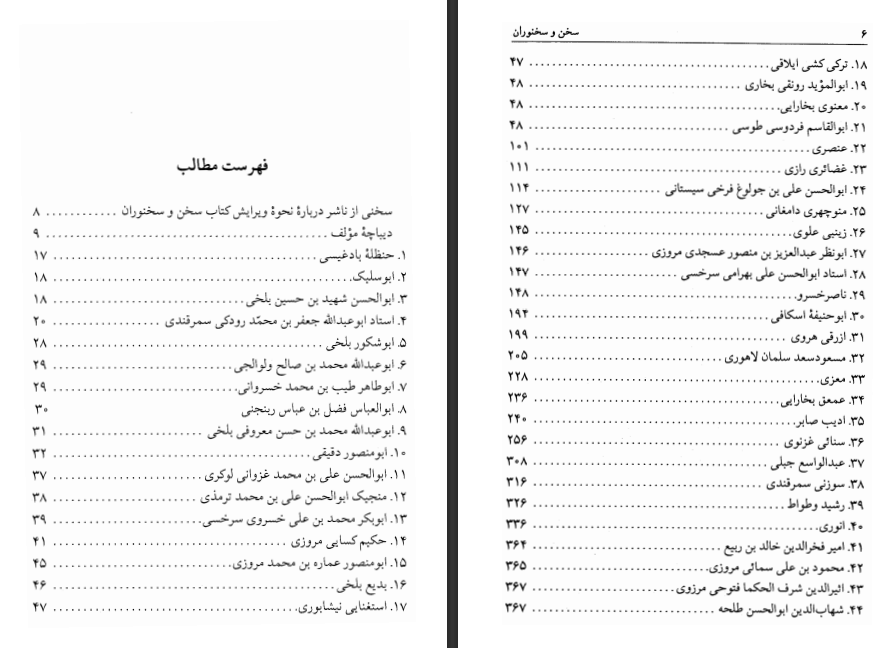 فهرست مطالب
سخنی از ناشر دربارهٔ نحوهٔ ویرایش کتاب سخن و سخنوران ............ ۸
دیباچهٔ مؤلف ............ ۹
۱. حنظلهٔ بادغیسی ............ ۱۷
۲. ابوسلیک ............ ۱۸
۳. ابوالحسن شهید بن حسین بلخی ............ ۱۸
۴. استاد ابوعبدالله جعفر بن محمّد رودکی سمرقندی ............ ۲۰
۵. ابوشکور بلخی ............ ۲۸
۶. ابوعبدالله محمد بن صالح ولوالجی ............ ۲۹
۷. ابوطاهر طیب بن محمد خسروانی ............ ۲۹
۸. ابوالعباس فضل بن عباس ربنجنی ۳۰
۹. ابوعبدالله محمد بن حسن معروفی بلخی ............ ۳۱
۱۰. ابومنصور دقیقی ............ ۳۲
۱۱. ابوالحسن علی بن محمد غزوانی لوکری ............ ۳۷
۱۲. منجیک ابوالحسن علی بن محمد ترمذی ............ ۳۸
۱۳. ابوبکر محمد بن علی خسروی سرخسی ............ ۳۹
۱۴. حکیم کسایی مروزی ............ ۴۱
۱۵. ابومنصور عماره بن محمد مروزی ............ ۴۵
۱۶. بدیع بلخی ............ ۴۶
۱۷. استغنایی نیشابوری ............ ۴۷
۶ سخن و سخنوران
۱۸. ترکی کشی ایلاقی ............ ۴۷
۱۹. ابوالمؤید رونقی بخاری ............ ۴۸
۲۰. معنوی بخارایی ............ ۴۸
۲۱. ابوالقاسم فردوسی طوسی ............ ۴۸
۲۲. عنصری ............ ۱۰۱
۲۳. غضائری رازی ............ ۱۱۱
۲۴. ابوالحسن علی بن جولوغ فرخی سیستانی ............ ۱۱۴
۲۵. منوچهری دامغانی ............ ۱۲۷
۲۶. زینبی علوی ............ ۱۴۵
۲۷. ابونظر عبدالعزیز بن منصور عسجدی مروزی ............ ۱۴۶
۲۸. استاد ابوالحسن علی بهرامی سرخسی ............ ۱۴۷
۲۹. ناصرخسرو ............ ۱۴۸
۳۰. ابوحنیفهٔ اسکافی ............ ۱۹۴
۳۱. ازرقی هروی ............ ۱۹۹
۳۲. مسعودسعد سلمان لاهوری ............ ۲۰۵
۳۳. معزی ............ ۲۲۸
۳۴. عمعق بخارایی ............ ۲۳۶
۳۵. ادیب صابر ............ ۲۴۰
۳۶. سنائی غزنوی ............ ۲۵۶
۳۷. عبدالواسع جبلی ............ ۳۰۸
۳۸. سوزنی سمرقندی ............ ۳۱۶
۳۹. رشید وطواط ............ ۳۲۶
۴۰. انوری ............ ۳۳۶
۴۱. امیر فخرالدین خالد بن ربیع ............ ۳۶۴
۴۲. محمود بن علی سمائی مروزی ............ ۳۶۵
۴۳. اثیرالدین شرف الحکما فتوحی مرزوی ............ ۳۶۷
۴۴. شهاب‌الدین ابوالحسن طلحه ............ ۳۶۷